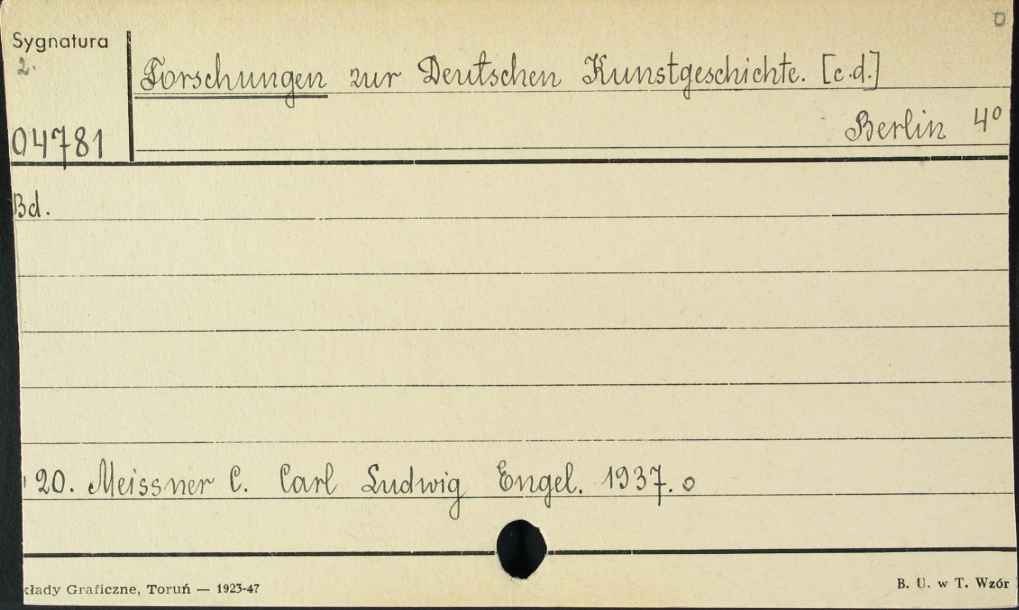 Sygnatura
2.
Forschungen zur Deutschen Kunstgeschichte. [c.d.]
04781
Berlin 4°
Bd.
20. Meissner C. Carl Ludwig Engel. 1937. o
kłady Graficzne, Toruń — 1923-47
B. U. w T. Wzór